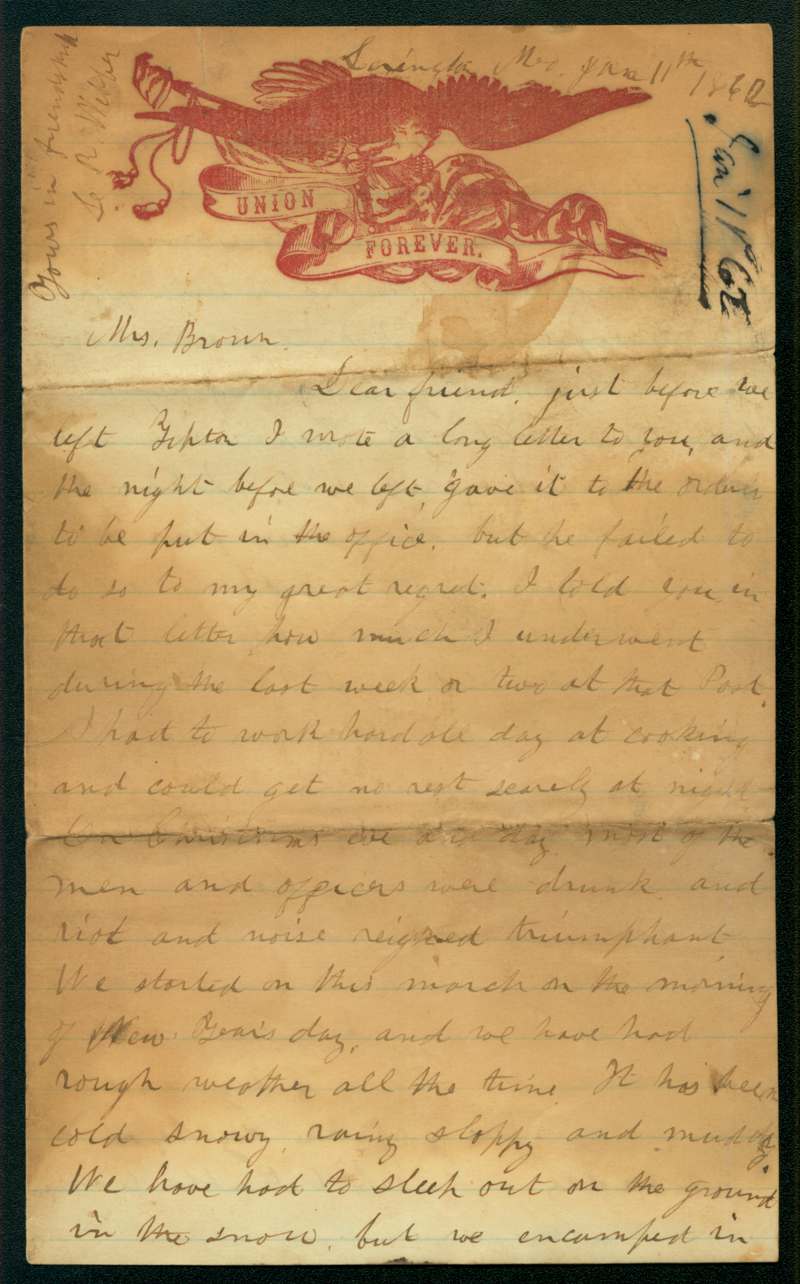 Mo. Jan 11th 1862
Jan' 11th 62
Yours in friendship
UNION
FOREVER.
Mrs. Brown.
Dear friend, just before we
left Tipton I wrote a long letter to you, and
the night before we left, gave it to the orderly
to be put in the office, but he failed to
do so to my great regret. I told you in
that letter how much I underwent
during the last week or two at that Post.
I had to work hard all day at cooking
and could get no rest scarely at night
On Christmas eve and day most of the
men and officers were drunk and
riot and noise reigned triumphant
We started on this march on the morning
of New Years day, and we have had
rough weather all the time. It has been
cold snowy rainy sloppy and muddy.
We have had to sleep out on the ground
in the snow, but we encamped in